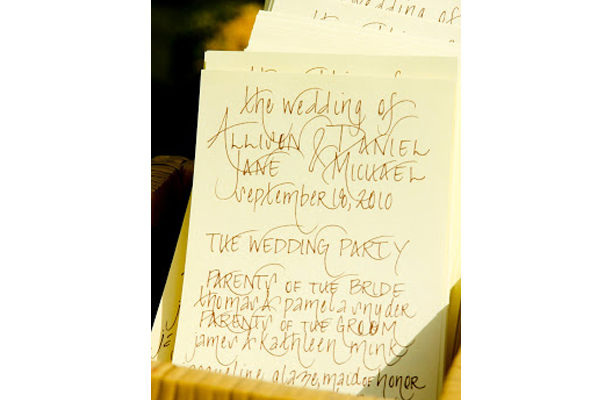 wedding of
the wedding of
ALLISON & DANIEL
JANE MICHAEL
september 18, 2010
THE WEDDING PARTY
PARENTS OF THE BRIDE
thomas & pamela snyder
PARENTS OF THE GROOM
james & kathleen mink
jacqueline glaze, maid OF HONOR